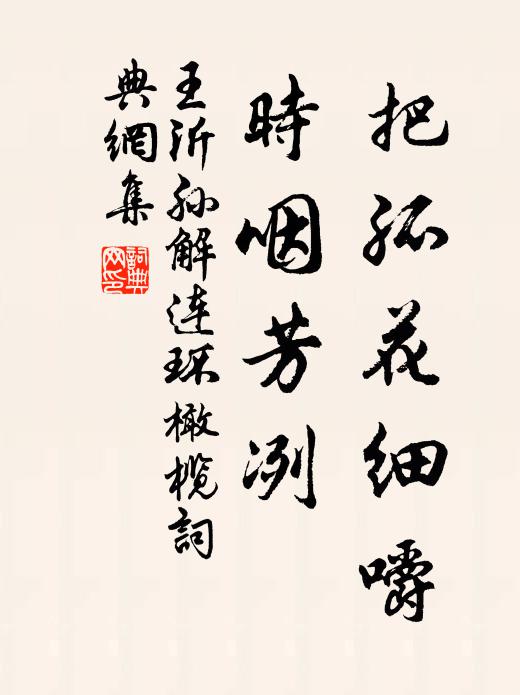 把孤花细嚼
時咽芳冽
王沂孙解连环橄榄詞
典網集
詞典
网印